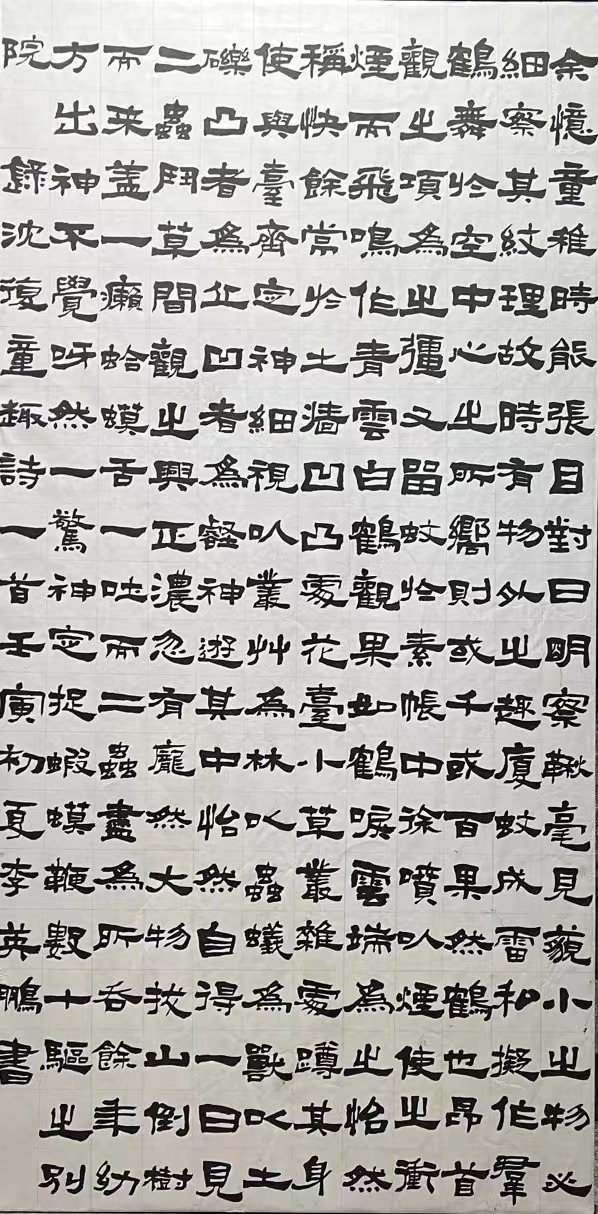 余憶童稚時能張目對日明察鞦毫見藐小之物必
細察其紋理故時有物外之趣廈蚊成雷和擬作羣
鶴舞於空中心之所嚮則或千或百果然鶴也昂首
觀之項為之彊又留蚊於素帳中徐噴以煙使之衝
煙而飛鳴作青雲白鶴觀果如鶴唳雲端為之怡然
稱快餘常於土墻凹凸處花臺小草叢雜處蹲其身
使與臺齊定神細視以叢艸為林以蟲蟻為獸以土
礫凸者為丘凹者為壑神遊其中怡然自得一日見
二蟲鬥草間觀之興正濃忽有龐然大物拔山倒樹
而来蓋一癩蛤蟆舌一吐而二蟲盡為所吞餘年幼
方出神不覺呀然一驚神定捉蝦蟆鞭數十驅之別
院 錄沈復童趣詩一首壬寅初夏李英鵬書